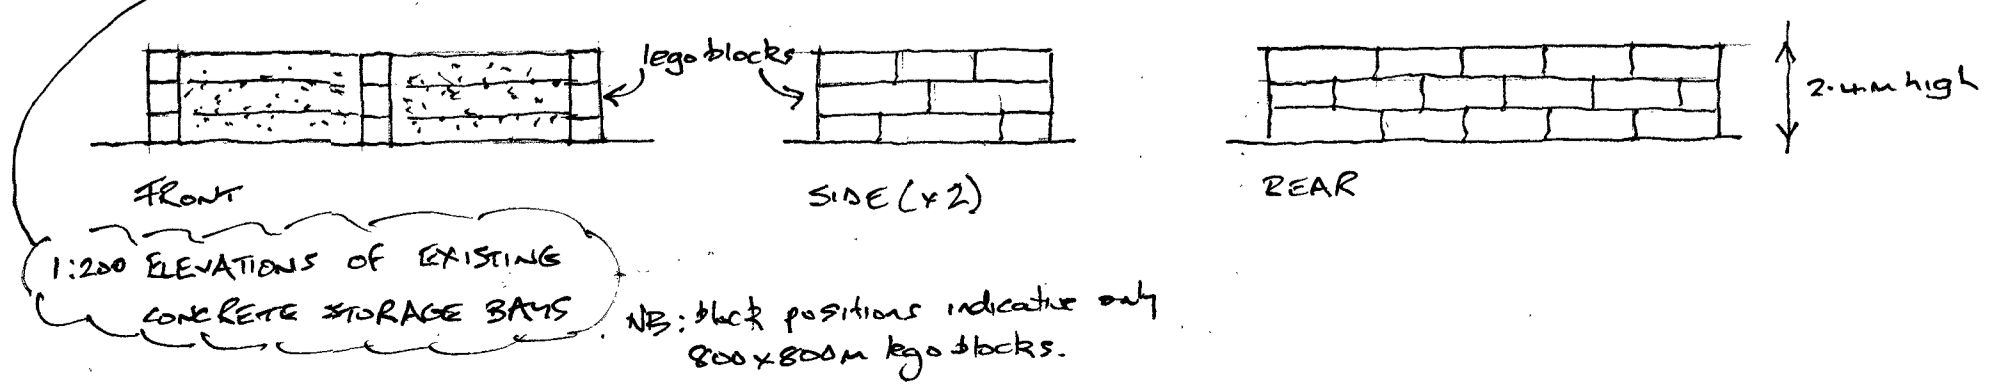 lego blocks
2.4m high
FRONT
SIDE (x2)
REAR
1:200 ELEVATIONS OF EXISTING
CONCRETE STORAGE BAYS
NB: block positions indicative only
800x800m lego blocks.